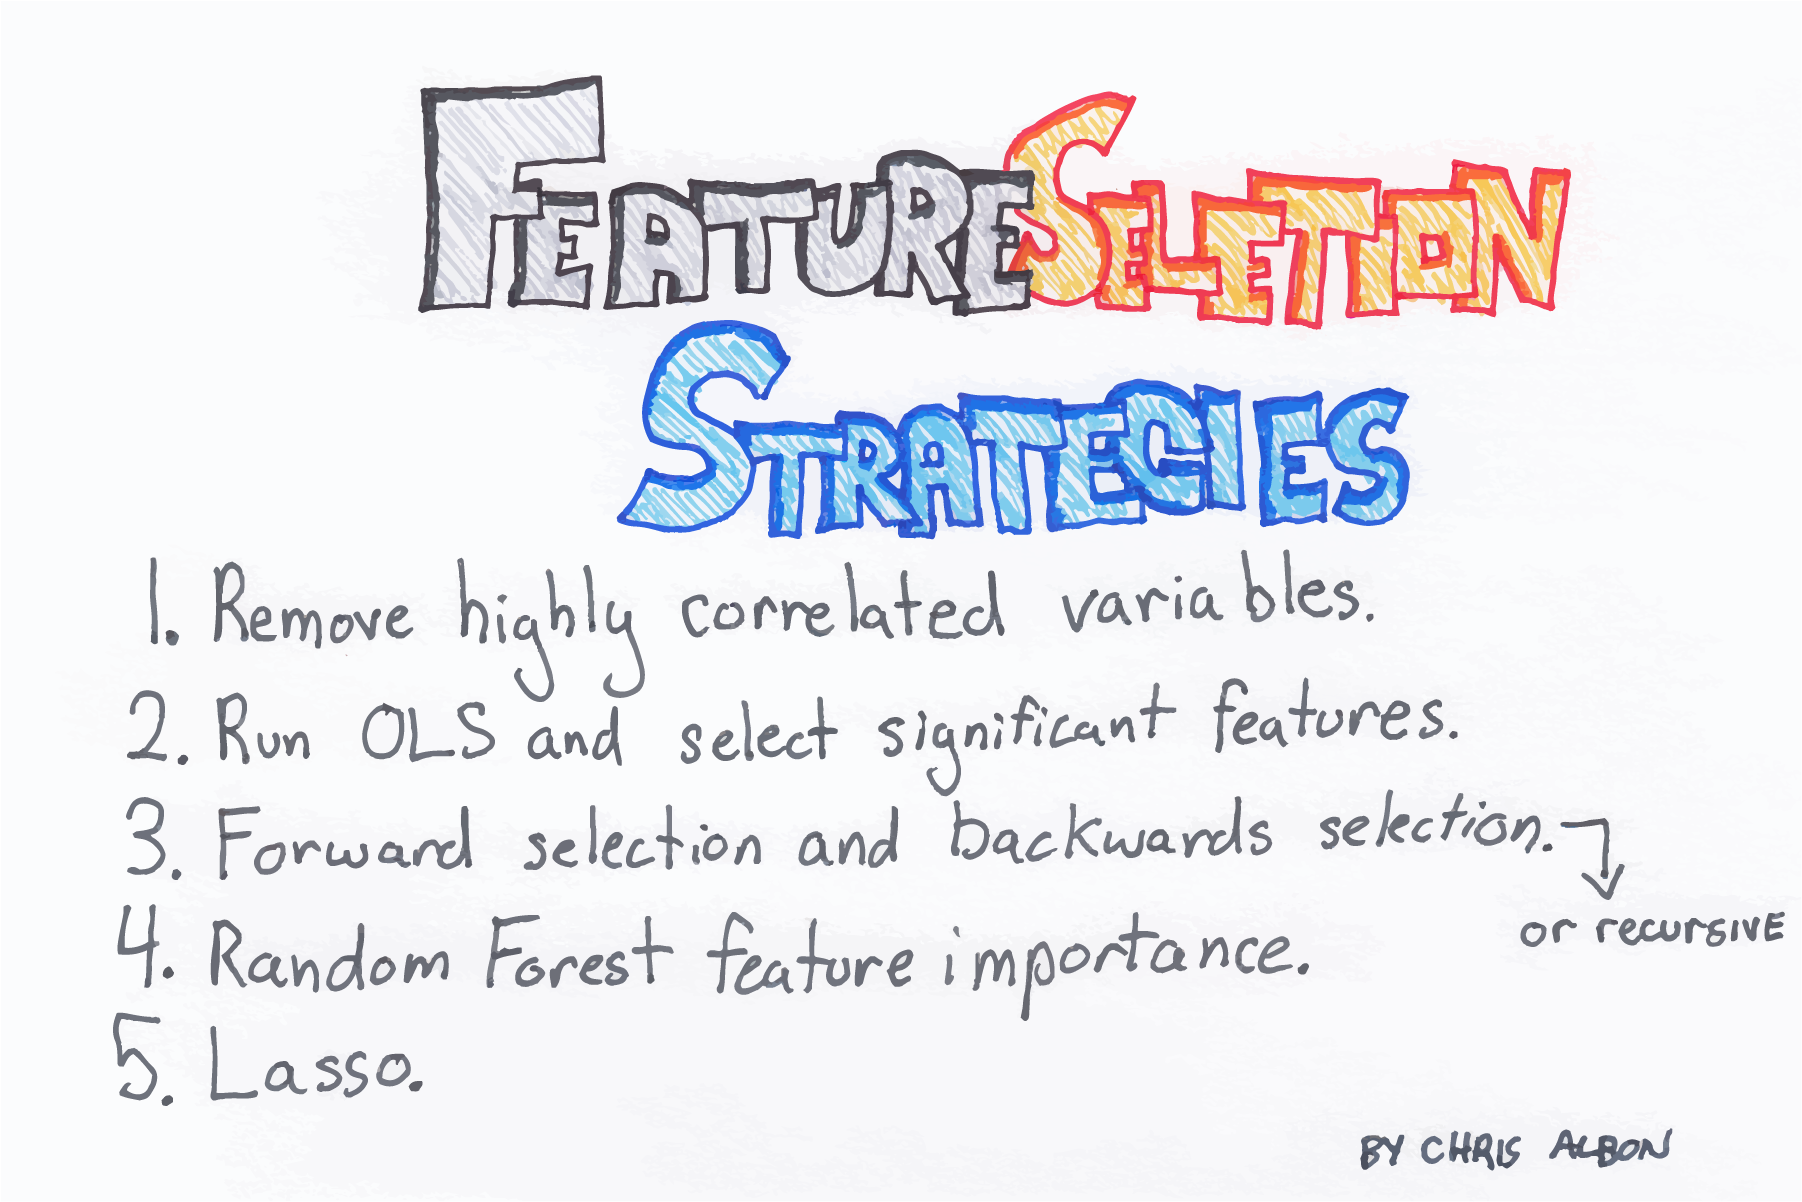 FEATURE SELETION
STRATEGIES
1. Remove highly correlated variables.
2. Run OLS and select significant features.
3. Forward selection and backwards selection.
or recursive
4. Random Forest feature importance.
5. Lasso.
BY CHRIS ALBON